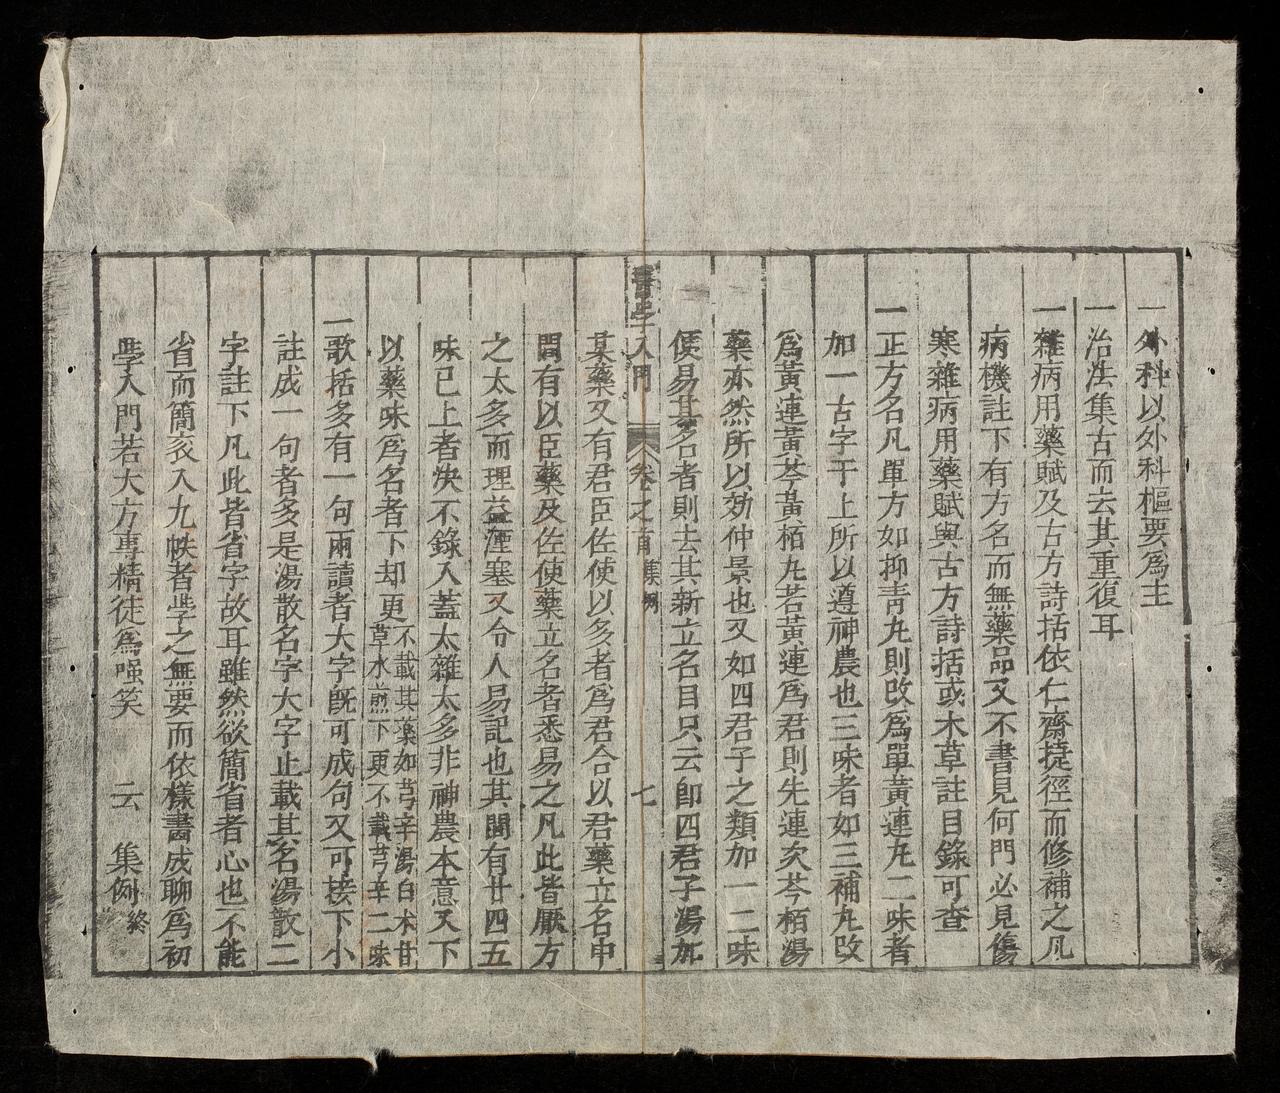 一外科以外科樞要爲主
一治法集古而去其重復耳
一雜病用藥賦及古方詩括依仁齋揵徑而修補之凡
病機註下有方名而無藥品又不書見何門必見傷
寒雜病用藥賦與古方詩括或木草註目錄可查
一正方名凡單方如抑靑丸則改爲單黃連丸二味者
加一古字于上所以遵神農也三味者如三補丸改
爲黃連黃芩黃栢丸若黃連爲君則先連次芩栢湯
藥亦然所以効仲景也又如四君子之類加一二味
便易其名者則去其新立名目只云卽四君子湯加
醫學入門 卷之首 集例 七
某藥又有君臣佐使以多者爲君合以君藥立名中
間有以臣藥及佐使藥立名者悉易之凡此皆厭方
之太多而理益湮塞又令人易記也其間有廿四五
味已上者快不錄入蓋太雜太多非神農本意又下
以藥味爲名者下却更不載其藥如芎辛湯白术甘
草水煎下更不載芎辛二味
一歌括多有一句兩讀者大字旣可成句又可接下小
註成一句者多是湯散名字大字止載其名湯散二
字註下凡此皆省字故耳雖然欲簡省者心也不能
省而簡袤入九帙者學之無要而依樣畵成聊爲初
學入門若大方專精徒爲嗤笑 云 集例終